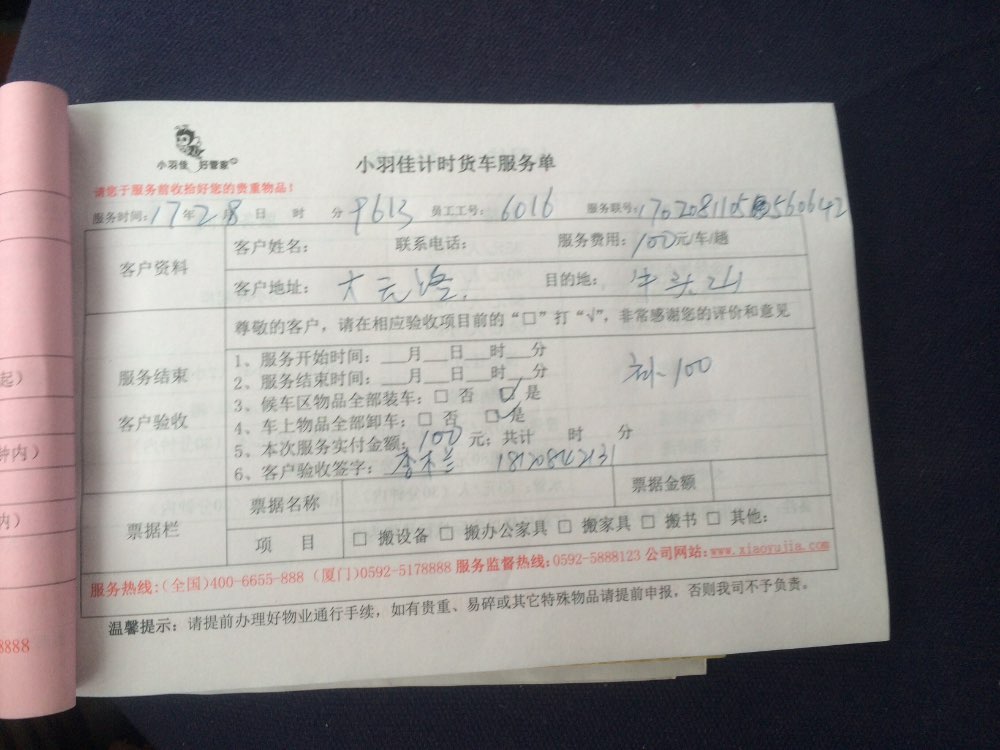 小羽佳 好管家
小羽佳计时货车服务单
请您于服务前收拾好您的贵重物品！
服务时间：17年2月8日 时 分 9613 员工工号：6016 服务联号：
客户资料
客户姓名： 联系电话： 服务费用：100元/车/趟
客户地址：大元路 目的地：牛头山
服务结束
客户验收
尊敬的客户，请在相应验收项目前的“□”打“√”，非常感谢您的评价和意见
1、服务开始时间：___月___日___时___分
2、服务结束时间：___月___日___时___分
补100
3、候车区物品全部装车：□ 否 ☑ 是
4、车上物品全部卸车：□ 否 ☑ 是
5、本次服务实付金额：100元；共计 时 分
6、客户验收签字：李木兰 18120842131
票据栏
票据名称 票据金额
项 目 □ 搬设备 □ 搬办公家具 □ 搬家具 □ 搬书 □ 其他：
服务热线：(全国)400-6655-888 (厦门)0592-5178888 服务监督热线：0592-5888123 公司网站：www.xiaoyujia.com
温馨提示：请提前办理好物业通行手续，如有贵重、易碎或其它特殊物品请提前申报，否则我司不予负责。
起）
钟内）
内）
8888